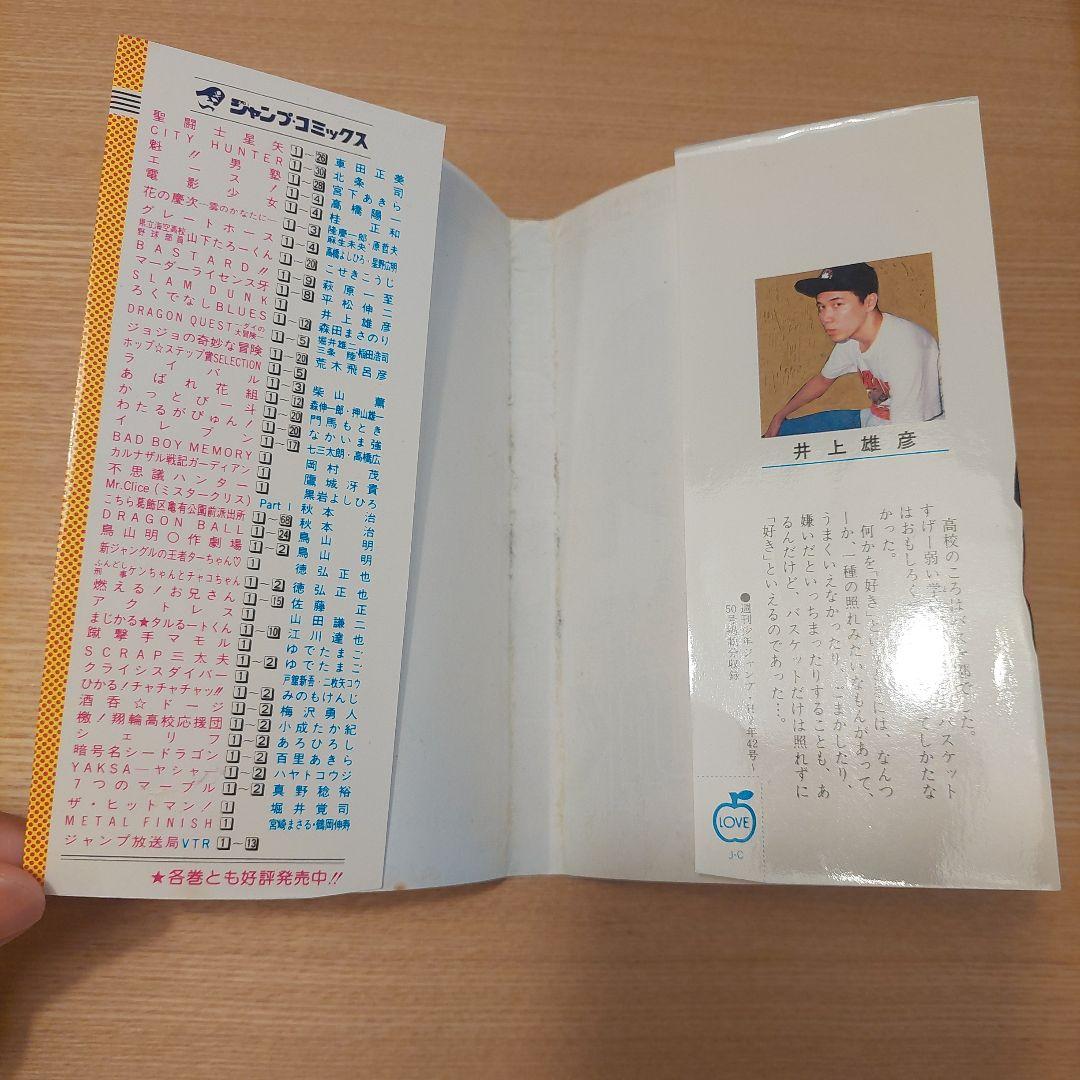 ジャンプ・コミックス
聖闘士星矢 1~26 車田正美
CITY HUNTER 1~30 北条司
魁!!男塾 1~29 宮下あきら
エース! 1~4 高橋陽一
電影少女 1~4 桂正和
花の慶次―雲のかなたに― 1~3 隆慶一郎・原哲夫 麻生未央
グレートホース 1~4 高橋よしひろ・星野広明
県立海空高校野球部員山下たろーくん 1~20 こせきこうじ
BASTARD!! 1~9 萩原一至
マーダーライセンス牙 1~8 平松伸二
SLAM DUNK 1 井上雄彦
ろくでなしBLUES 1~12 森田まさのり
DRAGON QUEST―ダイの大冒険― 1~5 堀井雄二 三条陸・稲田浩司
ジョジョの奇妙な冒険 1~20 荒木飛呂彦
ホップ☆ステップ賞SELECTION 1~5
ライバル 1~3 柴山薫
あばれ花組 1~12 森伸一郎・押山雄一
かっとび一斗 1~20 門馬もとき
わたるがぴゅん! 1~20 なかいま強
イレブン 1~17 七三太朗・高橋広
BAD BOY MEMORY 1 岡村茂
カルナザル戦記ガーディアン 1 鷹城冴貴
不思議ハンター 1 黒岩よしひろ
Mr.Clice(ミスタークリス) Part 1 秋本治
こちら葛飾区亀有公園前派出所 1~68 秋本治
DRAGON BALL 1~24 鳥山明
鳥山明○作劇場 1~2 鳥山明
新ジャングルの王者ターちゃん♡ 1 徳弘正也
ふんどし刑事ケンちゃんとチャコちゃん 1~2 徳弘正也
燃える!お兄さん 1~19 佐藤正
アクトレス 1 山田謙二
まじかる★タルるートくん 1~10 江川達也
蹴撃手マモル 1 ゆでたまご
SCRAP三太夫 1~2 ゆでたまご
クライシスダイバー 1 戸舘新吾・二枚矢コウ
ひかる!チャチャチャッ!! 1~2 みのもけんじ
酒呑☆ドージ 1~2 梅沢勇人
檄!翔輪高校応援団 1~2 小成たか紀
シェリフ 1~2 あろひろし
暗号名シードラゴン 1~2 百里あきら
YAKSA―ヤシャ― 1~2 ハヤトコウジ
7つのマーブル 1~2 真野稔裕
ザ・ヒットマン! 1 堀井覚司
METAL FINISH 1 宮崎まさる・鶴岡伸寿
ジャンプ放送局VTR 1~13
★各巻とも好評発売中!!
井上雄彦
高校のころはバス
すげー弱い学
はおもしろく てしかたな
かった。
何かを「好き」 には、なんつ
ーか、一種の照れみたいなもんがあって、
うまくいえなかったり、ごまかしたり、
嫌いだといっちまったりすることも、あ
るんだけど、バスケットだけは照れずに
「好き」といえるのであった…。
●週刊少年ジャンプ 年42号~
50号掲載分収録
LOVE
J・C